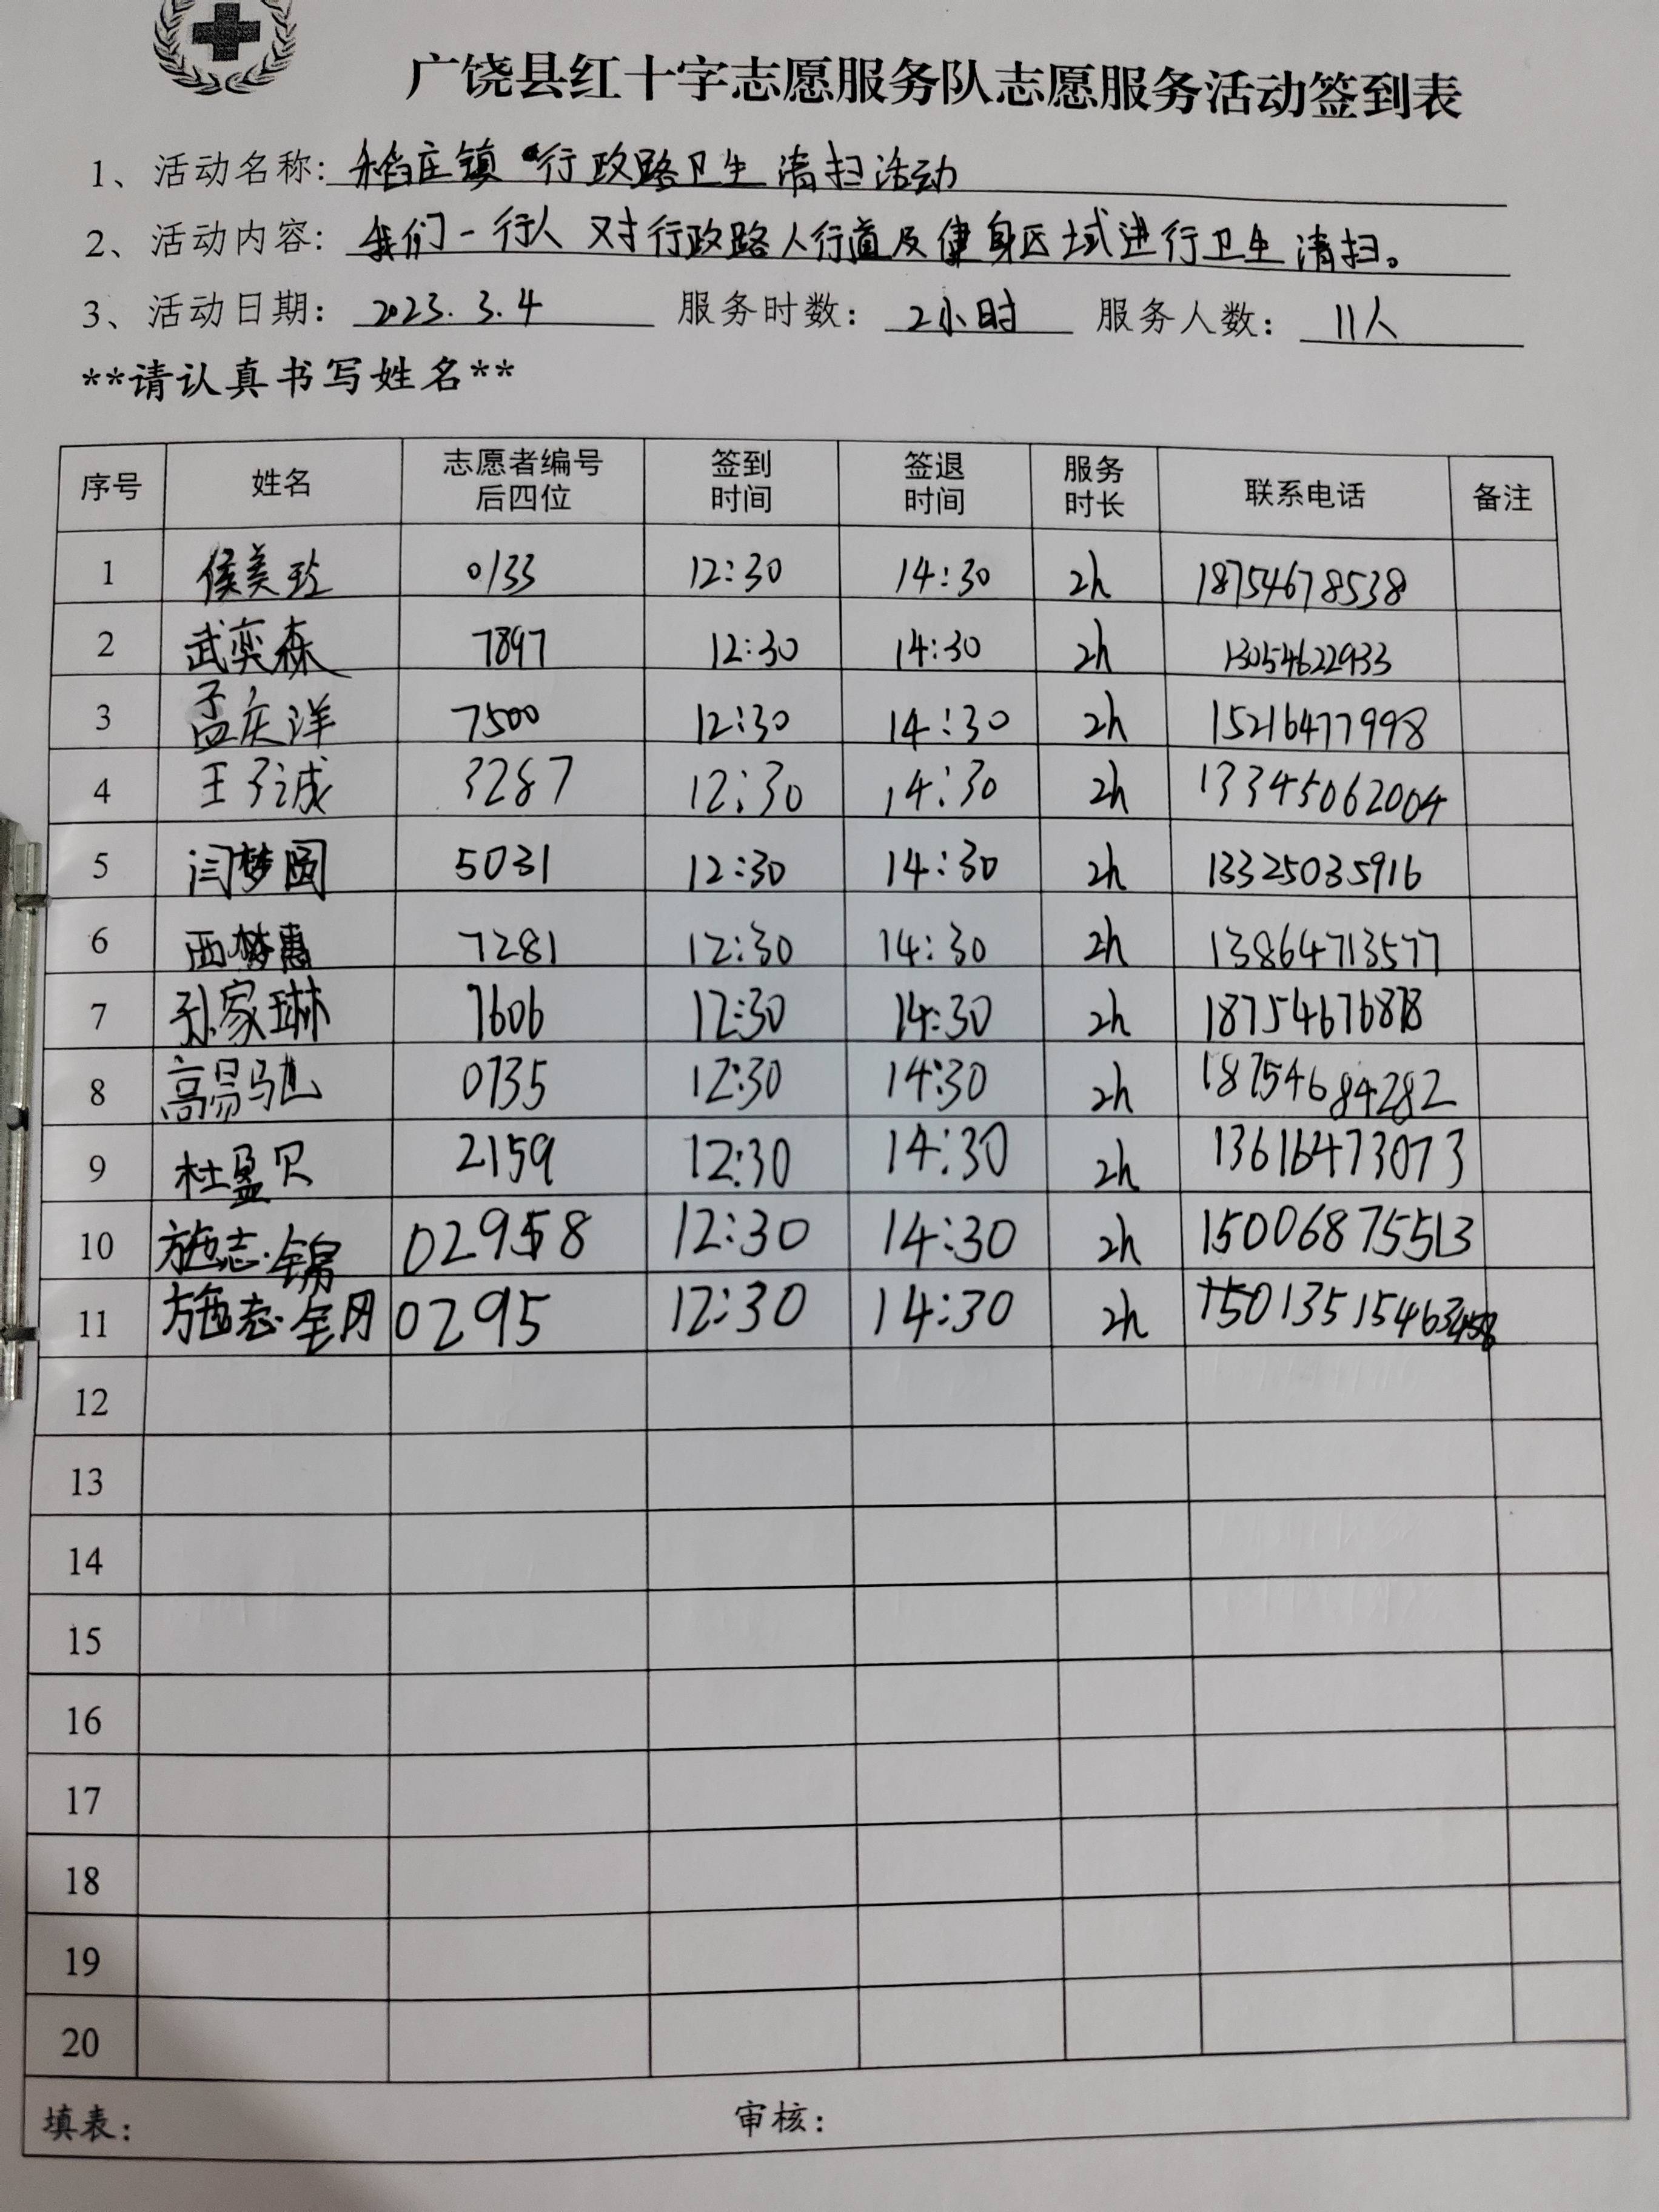 广饶县红十字志愿服务队志愿服务活动签到表
1、活动名称：稻庄镇行政路卫生清扫活动
2、活动内容：我们一行人对行政路人行道及健身区域进行卫生清扫。
3、活动日期：2023.3.4 服务时数：2小时 服务人数：11人
**请认真书写姓名**
序号 姓名 志愿者编号后四位 签到时间 签退时间 服务时长 联系电话 备注
1 侯美玲 0133 12:30 14:30 2h 18754678538
2 武奕森 7897 12:30 14:30 2h 13054622933
3 孟庆洋 7500 12:30 14:30 2h 15216477998
4 王子诚 3287 12:30 14:30 2h 13345062004
5 闫梦圆 5031 12:30 14:30 2h 13325035916
6 西梦惠 7281 12:30 14:30 2h 13864713577
7 孙家琳 7606 12:30 14:30 2h
8 高易驰 0735 12:30 14:30 2h 18754684282
9 杜盈贝 2159 12:30 14:30 2h 13616473073
10 施志锦 12:30 14:30 2h 15006875513
11 施志 0295 12:30 14:30 2h
12
13
14
15
16
17
18
19
20
填表： 审核：